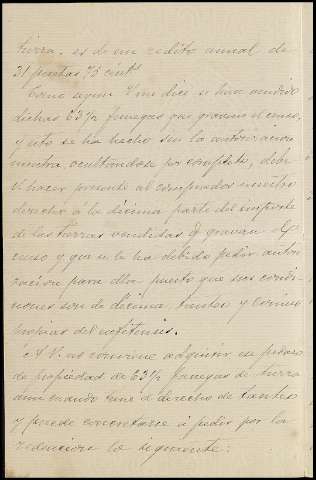 tierra, es de un redito anual de
31 pesetas 75 cents
Como segun V me dice se han vendido
dichas 63 1/2 fanegas que gravan el censo,
y esto se ha hecho sin la autorizacion
nuestra, ocultandose por completo, debe
V hacer presente al comprador nuestro
derecho á la décima parte del importe
de las tierras vendidas q gravan el
censo y que se le ha debido pedir autori
zacion para ello puesto que sus condi
ciones son de décima, tanteo y comiso
propias del enfiteusis.
A V. no conviene adquirir su pedazo
de propiedad de 63 1/2 fanegas de tierra
derecho de tanteo
y puede concretarse á pedir por la
redencion lo siguiente: